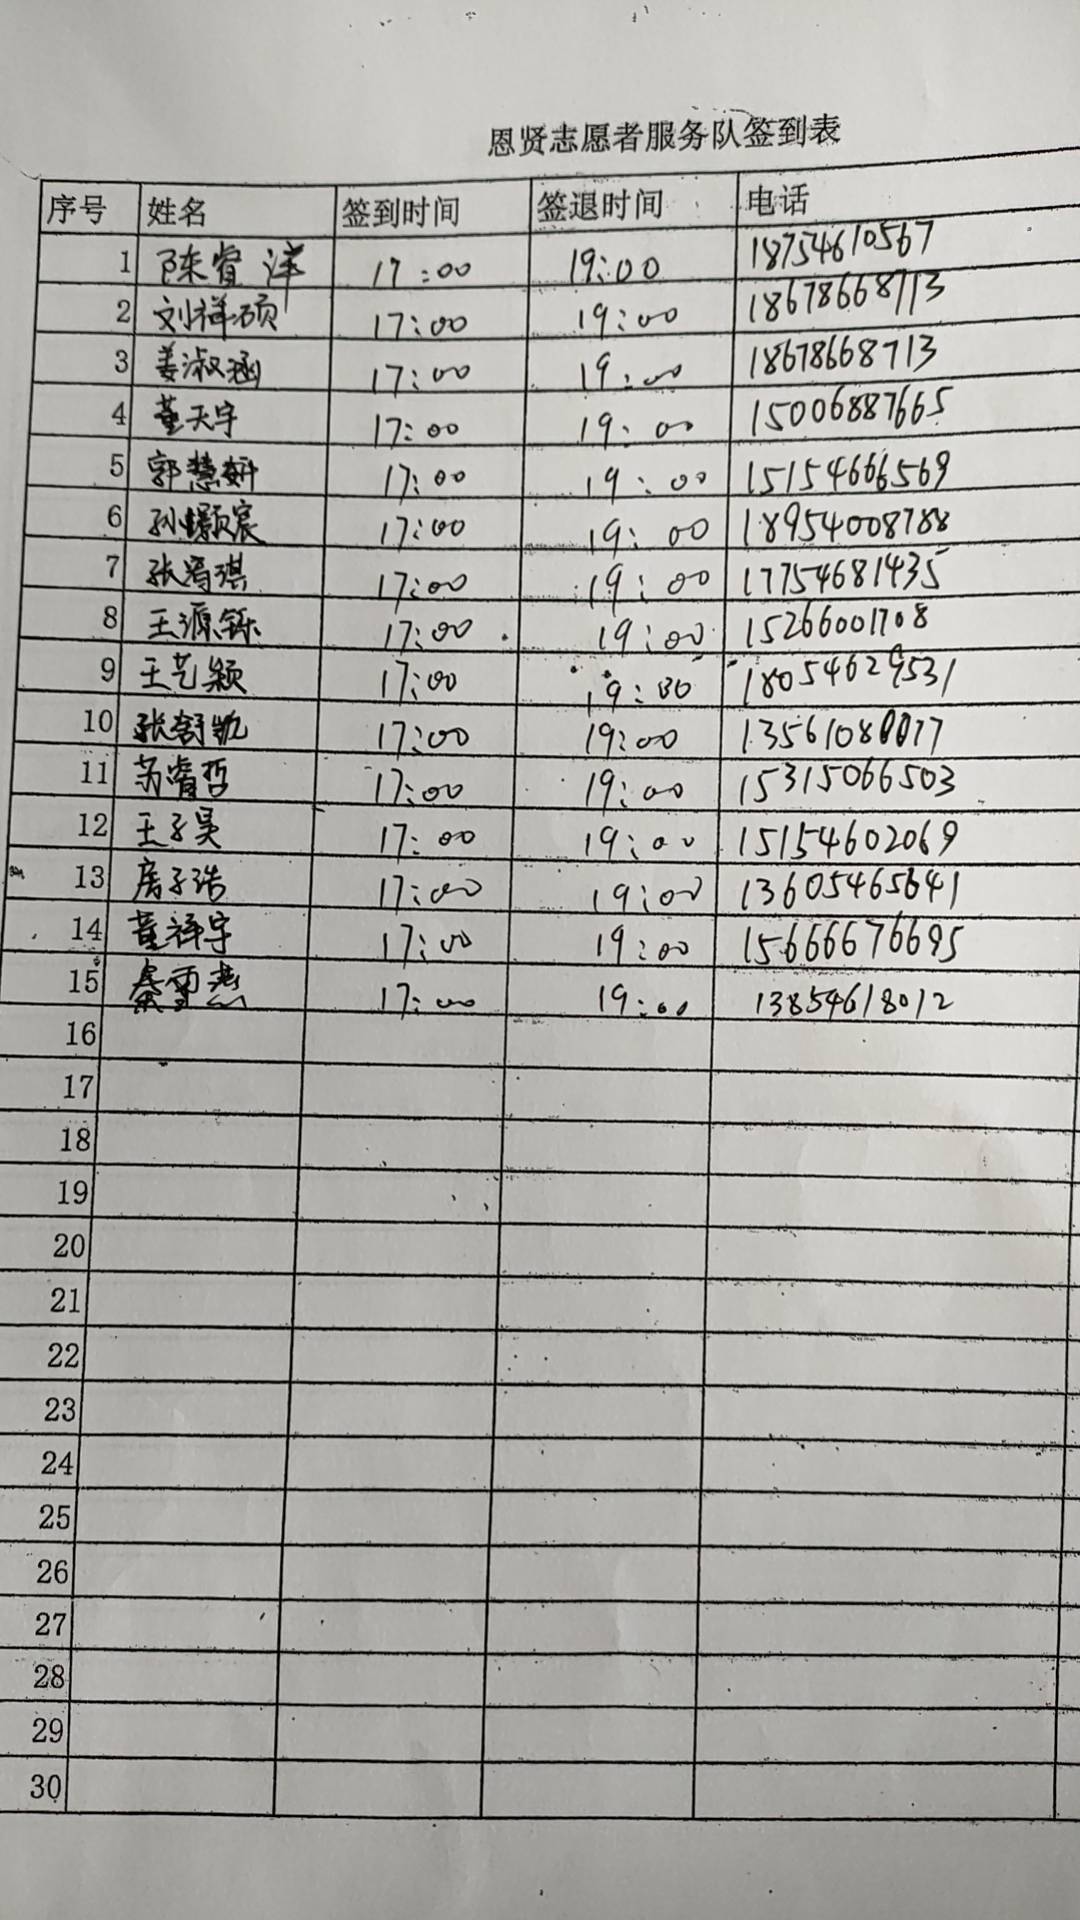 恩贤志愿者服务队签到表
序号 姓名 签到时间 签退时间 电话
1 陈睿洋 17:00 19:00 18754610567
2 刘祥硕 17:00 19:00 18678668713
3 姜淑涵 17:00 19:00 18678668713
4 董天宇 17:00 19:00 15006887665
5 郭慧妍 17:00 19:00 15154666569
6 孙颢宸 17:00 19:00 18954008788
7 张睿琪 17:00 19:00 17754681435
8 王源铄 17:00 19:00 15266001708
9 王艺颖 17:00 19:00 18054629531
10 张舒凯 17:00 19:00
11 苏睿哲 17:00 19:00 15315066503
12 王子昊 17:00 19:00 15154602069
13 房子浩 17:00 19:00 13605465641
14 董祥宇 17:00 19:00 15666676695
15 17:00 19:00 13854618012
16
17
18
19
20
21
22
23
24
25
26
27
28
29
30